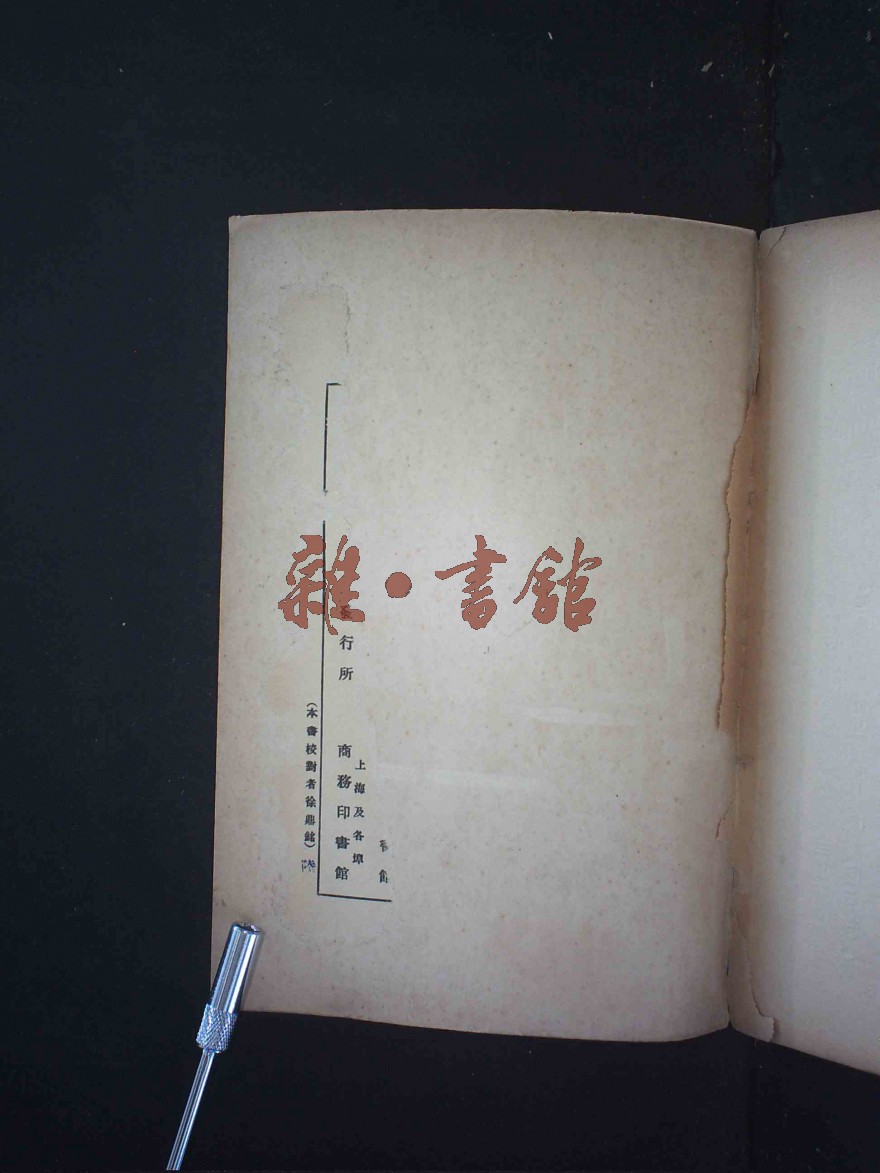 雜·書館
上海及各埠
行所 商務印書館
（本書校對者徐鼎銘）